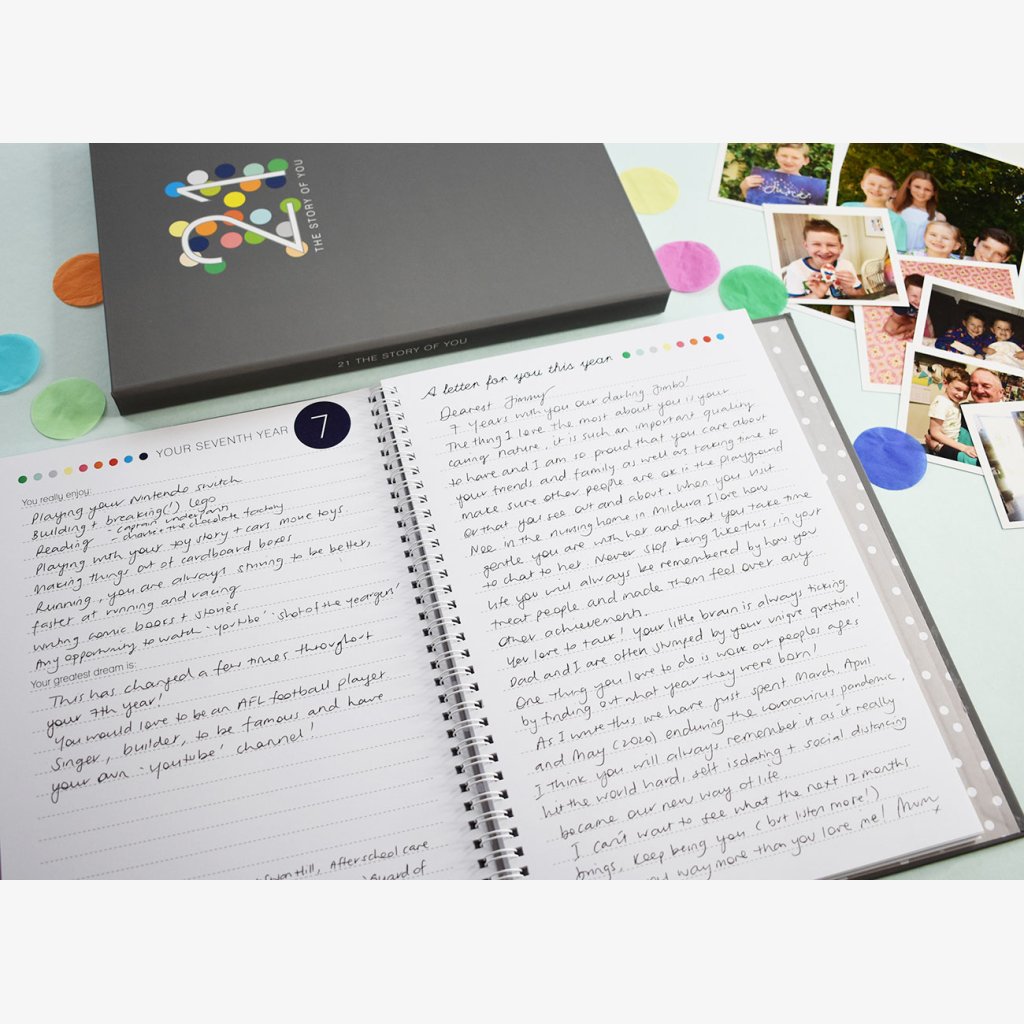 21
THE STORY OF YOU
21 THE STORY OF YOU
YOUR SEVENTH YEAR 7
You really enjoy:
Playing your Nintendo switch
Building + breaking(!) Lego
Reading - captain underpants
- charlie + the chocolate factory
Playing with your toy story + cars movie toys.
Making things out of cardboard boxes
Running, you are always striving to be better,
faster at running and racing
writing comic books + stories
Any opportunity to watch 'youtube' 'shot of the yeargen'
Your greatest dream is:
This has changed a few times throughout
your 7th year!
You would love to be an AFL football player
singer, builder, to be famous and have
your own 'youtube' channel!
Hill, After school care
Guard of
A letter for you this year
Dearest Jimmy
7 years with you our darling Jimbo!
The thing I love the most about you is your
caring nature, it is such an important quality
to have and I am so proud that you care about
your friends and family as well as taking time to
make sure other people are ok in the playground
or that you see out and about. When you visit
Nee in the nursing home in Mildura I love how
gentle you are with her and that you take time
to chat to her. Never stop being like this, in your
life you will always be remembered by how you
treat people and made them feel over any
other achievements.
You love to talk! Your little brain is always ticking.
Dad and I are often stumped by your unique questions!
One thing you love to do is work out peoples ages
by finding out what year they were born!
As I write this we have just spent March, April
and May (2020) enduring the coronavirus pandemic.
I think you will always remember it as it really
hit the world hard, self isolating + social distancing
became our new way of life.
I can't wait to see what the next 12 months
brings, keep being you (but listen more!)
way more than you love me! Mum
x